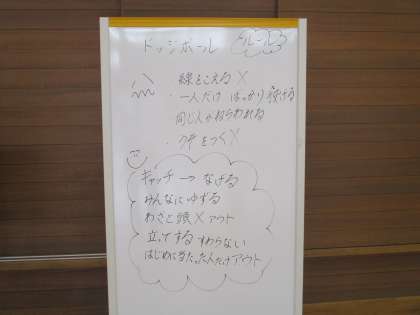 ドッジボール ルール
線をこえる×
・一人だけ ばっかり 投げる
同じ人がねらわれる
・ウソをつく×
キャッチ→なげる
みんなにゆずる
わざと頭×アウト
立ってする すわらない
はじめに当たった人だけアウト